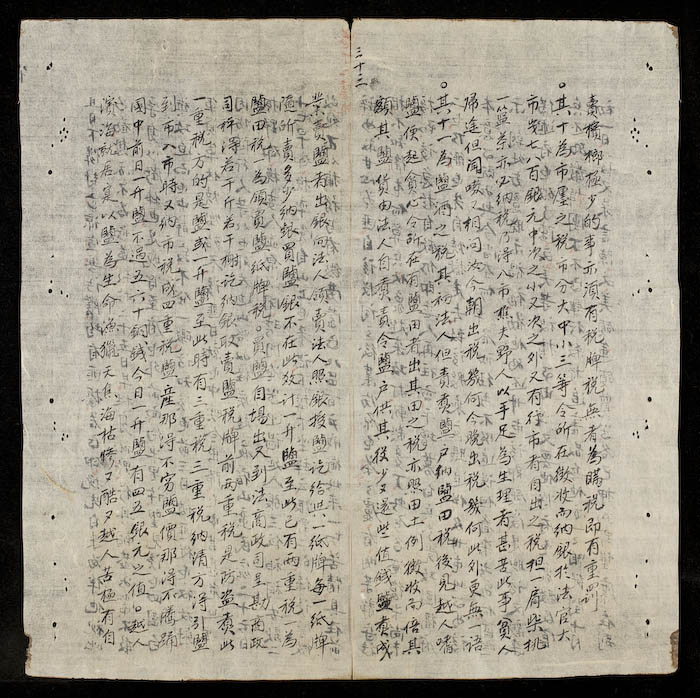 三十三
賣檳榔極少的事亦須有稅牌稅無者為瞞稅即有重罰
。其十為市廛之稅市分大中小三等令所在徵收而納銀於法官大
市皆七八百銀元中次之小又次之外又有行市者自出之稅担一肩柴挑
一籃菜亦必納稅乃得入市樵夫野人以手足為生理者甚苦此事貧人
歸途但聞咬々相問汝今朝出稅幾何今晚出稅幾何此外更無一語
。其十一為鹽酒之稅其初法人但責責鹽户納鹽田稅後見越人嗜
鹽便起貪心令所在有鹽田者出其田之稅亦照田土例徵收而倍其
額其鹽貨由法人自賣責令鹽户供其役少又逐些值錢鹽責成
業賣鹽者出銀向法人領賣法人照銀授鹽訖給一紙牌每一紙牌
隨所賣多少納銀買鹽銀不在此效計一升鹽至此已有兩重稅一為
鹽田稅一為領賣鹽紙牌稅。買鹽自場出又到法商政司呈勘商政
司秤得若干斤若干訖納銀取賣鹽稅牌前兩重稅是防盜賣此
一重稅方的是鹽或一升鹽至此時有三重稅三重稅納清方得引鹽
到市入市時又納市稅成四重稅鹽產那得不窮鹽價那得不騰踴
國中前日一升鹽不過五六十銅錢今日一升鹽有四五銀元之值。越人
濱海而居寔以鹽為生命漁獵天官海枯又酷又越人苦極有自